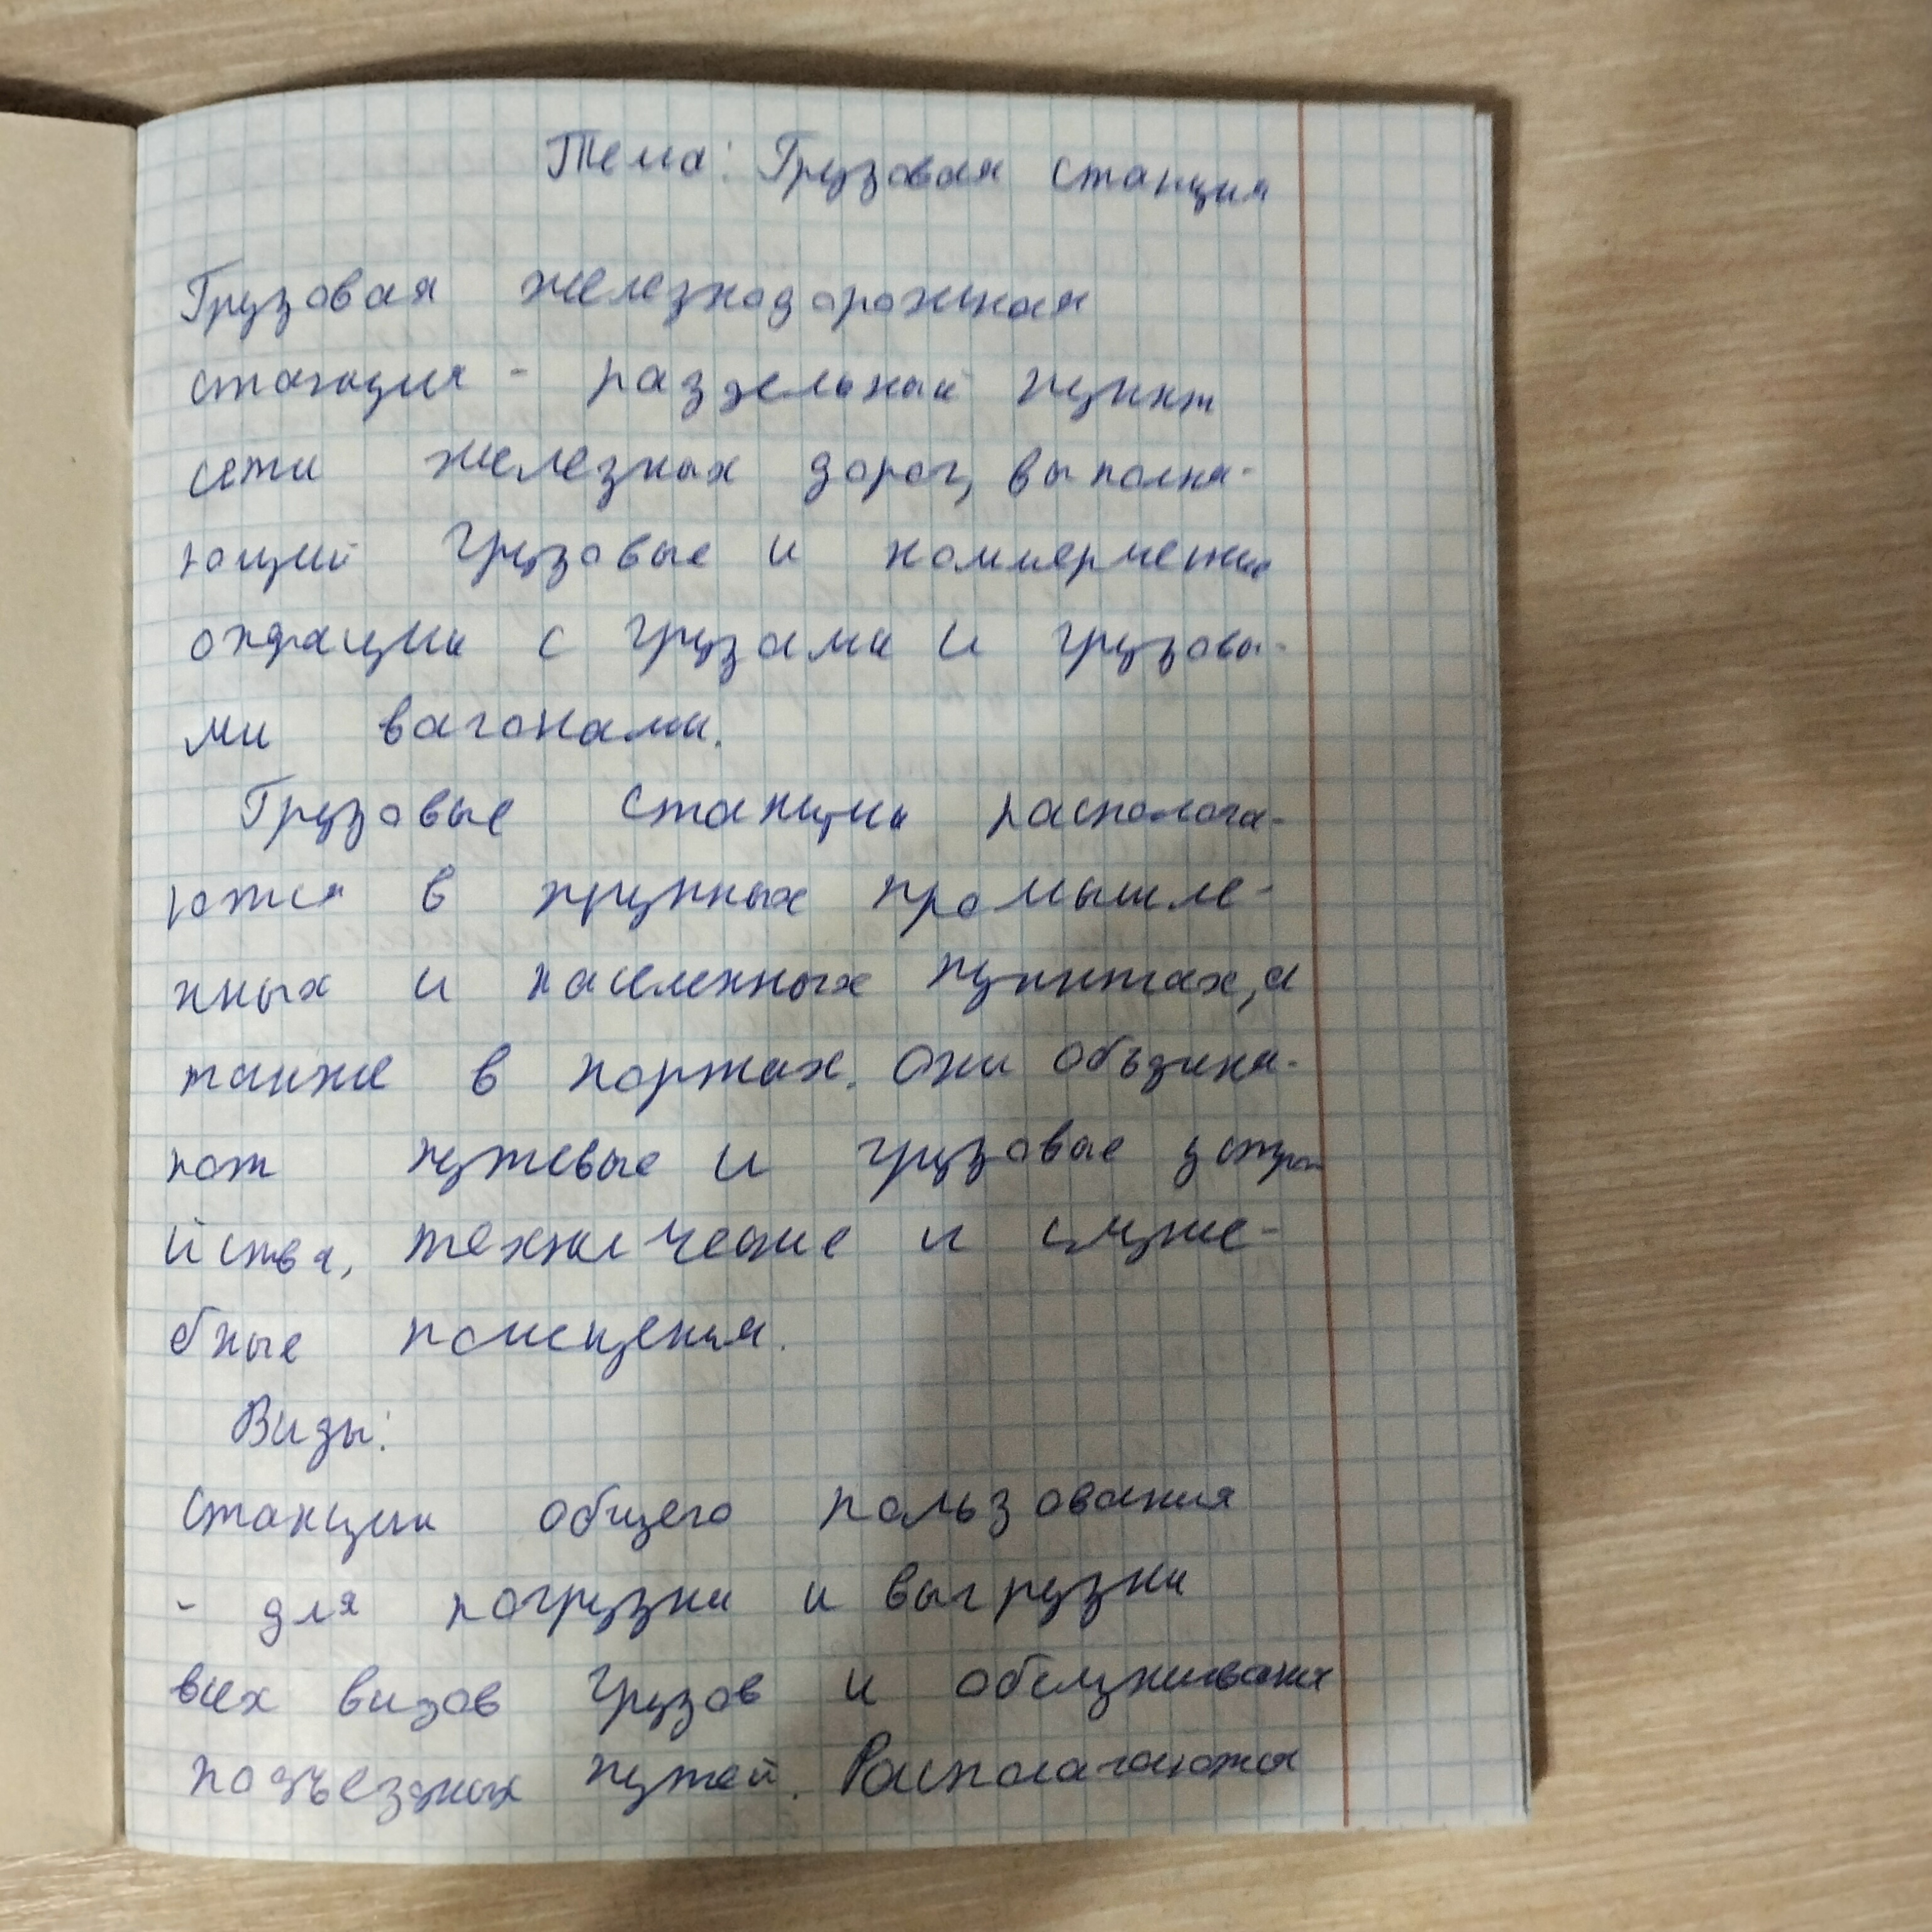 Тема: Грузовая станция
Грузовая железнодорожная
станция - раздельный пункт
сети железных дорог, выполня-
ющий грузовые и коммерческие
операции с грузами и грузовы-
ми вагонами.
Грузовые станции располога-
ются в крупных промышле-
нных и населенных пунктах, а
также в портах. Они объдиня-
ют путевые и грузовые устро
йства, технические и служе-
бные помещения.
Виды:
Станции общего пользования
- для погрузки и выгрузки
всех видов грузов и обслуживания
подъездных путей. Располагаются